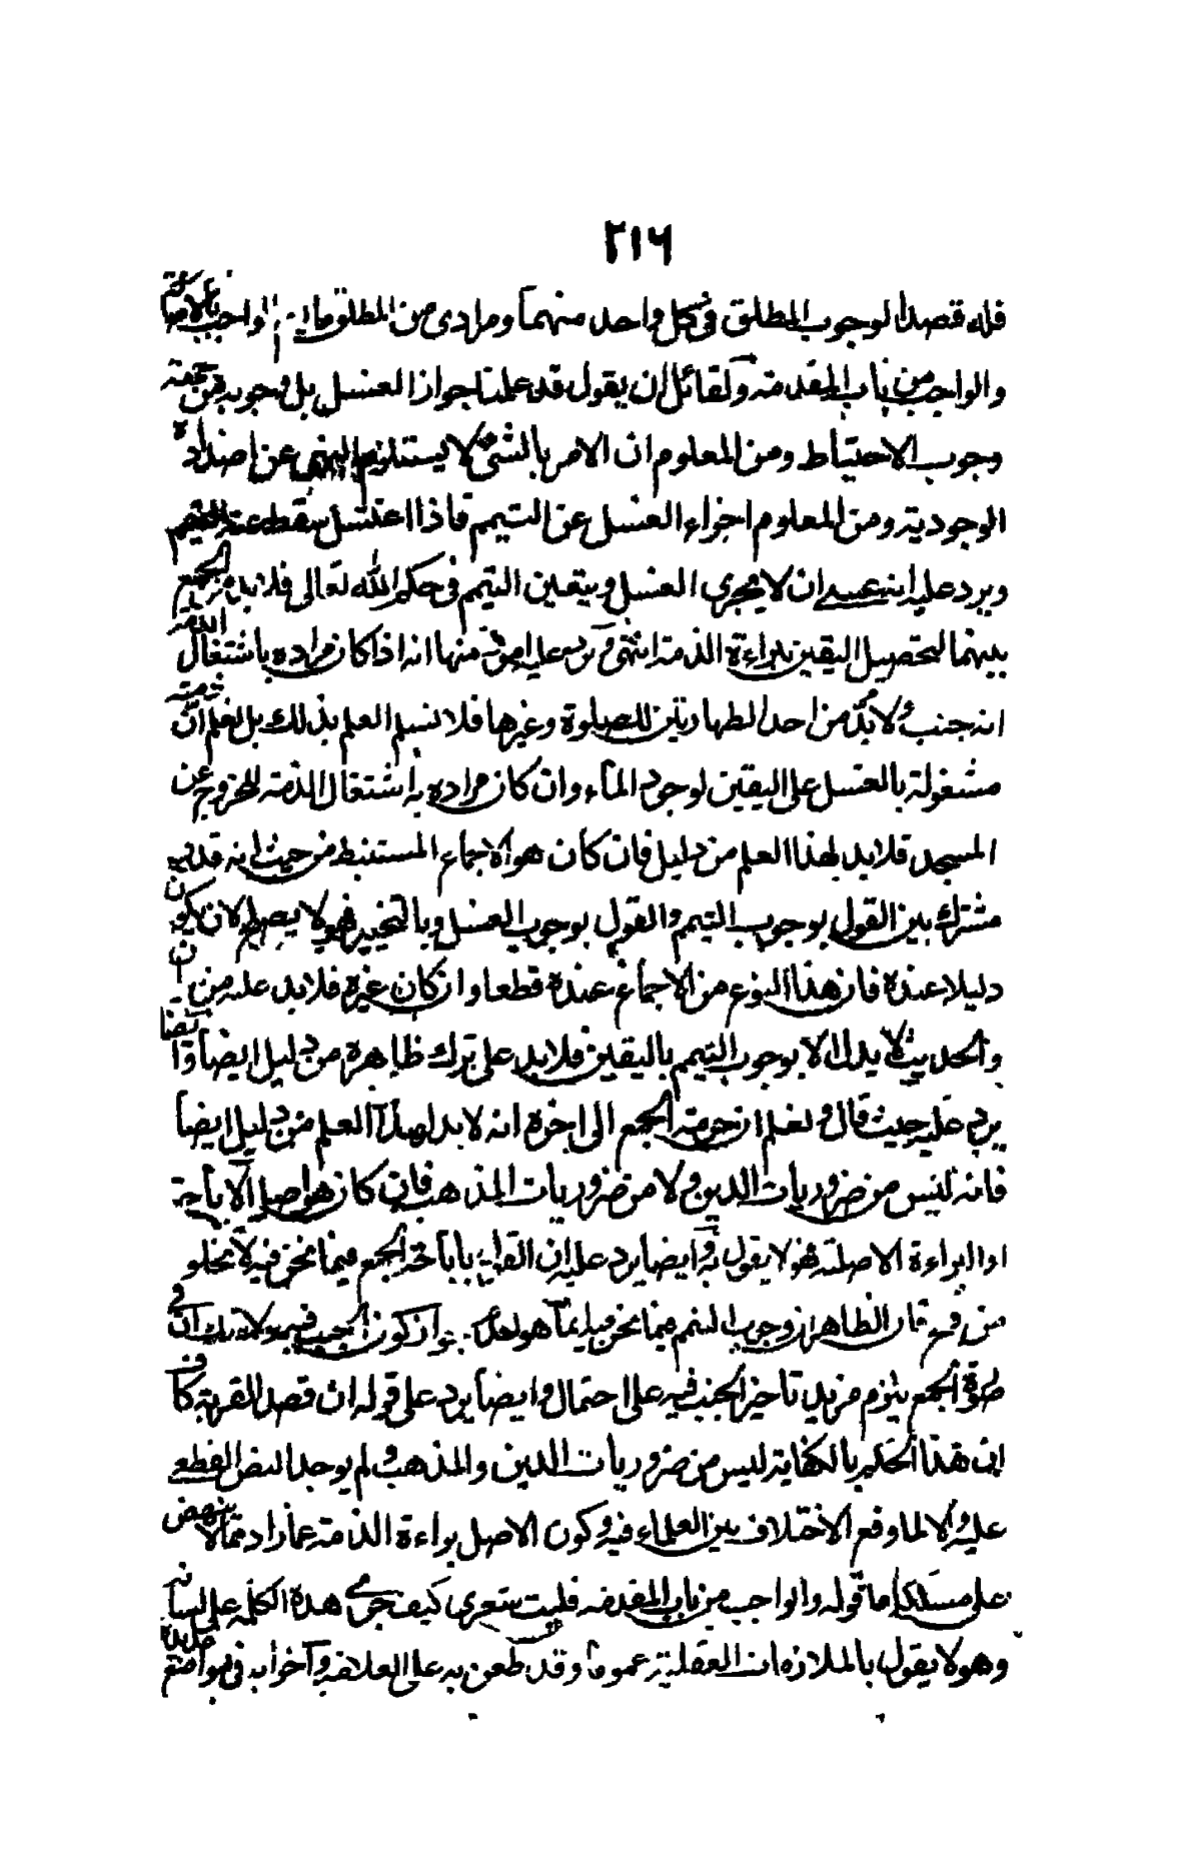 ٢١٦
فله قصد الوجوب المطلق في كل واحد منهما ومرادى من المطلق ما الواجب بالاصالة
والواجب من باب المقدمة ولقائل ان يقول قد علمنا جواز الغسل بل وجوبه من جهة
وجوب الاحتياط ومن المعلوم ان الامر بالشئ لا يستلزم النهى عن اضداده
الوجودية ومن المعلوم اجزاء الغسل عن التيمم فاذا اغتسل سقط عنه التيمم
ويرد عليه انه عسى ان لا يجزى الغسل ويتعين التيمم في حكم الله تعالى فلا بد من الجمع
بينهما لتحصيل اليقين ببراءة الذمة انتهى ويرد عليه امور منها انه اذا كان مراده باشتغال الذمة
انه جنب ولا بد من احد الطهارتين للصلوة وغيرها فلا نسلم العلم بذلك بل نعلم ان ذمته
مشغولة بالغسل على اليقين لوجود الماء وان كان مراده به اشتغال الذمة للخروج عن
المسجد فلا بد لهذا العلم من دليل فان كان هو الاجماع المستنبط من حيث انه قدر
مشترك بين القول بوجوب التيمم والقول بوجوب الغسل وبالتخيير فهو لا يصلح لان يكون
دليلا عنده فان هذا النوع من الاجماع عنده قطعا وان كان غيره فلا بد عليه من
والحديث لا يدل الا بوجوب التيمم باليقين فلا بد على ترك ظاهره من دليل ايضا وايضا
يرد عليه حيث قال ولعلم ان حرمة الجمع الى اخره انه لا بد لهذا العلم من دليل ايضا
فانه ليس من ضروريات الدين ولا من ضروريات المذهب فان كان هو اصل الاباحة
او البراءة الاصلية فهو لا يقول به وايضا يرد عليه ان القول باباحة الجمع فيما نحن فيه لا يخلو
من فان الظاهر ان وجوب التيمم فيما نحن فيه انما هو لعدم جواز كون الجنب فيه ولا شك ان في
صورة الجمع يلزم مزيد تاخير الجنب فيه على احتمال وايضا يرد على قوله ان قصد القربة كاف
ان هذا الحكم بالكفاية ليس من ضروريات الدين والمذهب ولم يوجد النص القطعى
عليه والا لما وقع الاختلاف بين العلماء فيه وكون الاصل براءة الذمة عما زاد مما لا ينهض
على مسلكه اما قوله والواجب من باب المقدمة فليت شعرى كيف جرى هذه الكلمة على لسانه
وهو لا يقول بالملازمات العقلية عموما وقد طعن به على العلامة واخرابه في مواضع عديدة